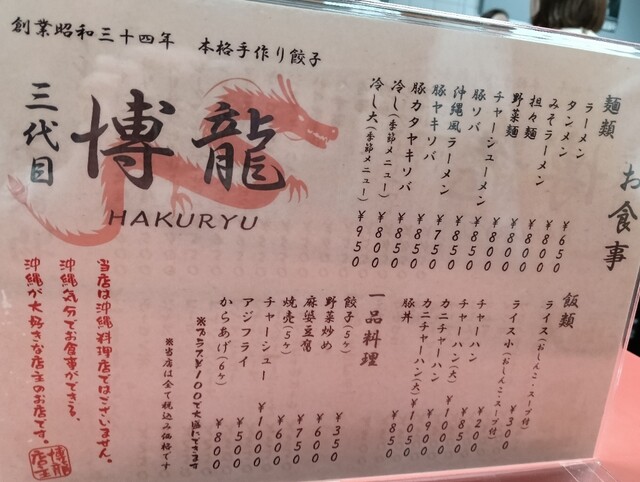 創業昭和三十四年 本格手作り餃子
三代目
博龍
HAKURYU
お食事
麺類
ラーメン ¥650
タンメン ¥800
みそラーメン ¥800
担々麺 ¥800
野菜麺 ¥800
チャーシューメン ¥800
豚ソバ ¥850
沖縄風ラーメン ¥850
豚ヤキソバ ¥750
豚カタヤキソバ ¥850
冷し(季節メニュー) ¥800
冷し大(季節メニュー) ¥950
飯類
ライス(おしんこ・スープ付) ¥300
ライス小(おしんこ・スープ付) ¥200
チャーハン ¥850
チャーハン(大) ¥1000
カニチャーハン
カニチャーハン(大) ¥1050
豚丼 ¥850
一品料理
餃子(5ヶ) ¥350
野菜炒め ¥600
麻婆豆腐 ¥750
焼売(5ヶ) ¥600
チャーシュー ¥1000
アジフライ ¥500
からあげ(6ヶ) ¥800
※プラス¥100で大盛にできます
※当店は全て税込み価格です
当店は沖縄料理店ではございません。
沖縄気分でお食事ができる、
沖縄が大好きな店主のお店です。
博龍
店主